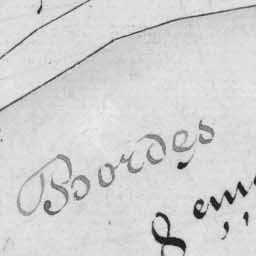 Bordes
8 em